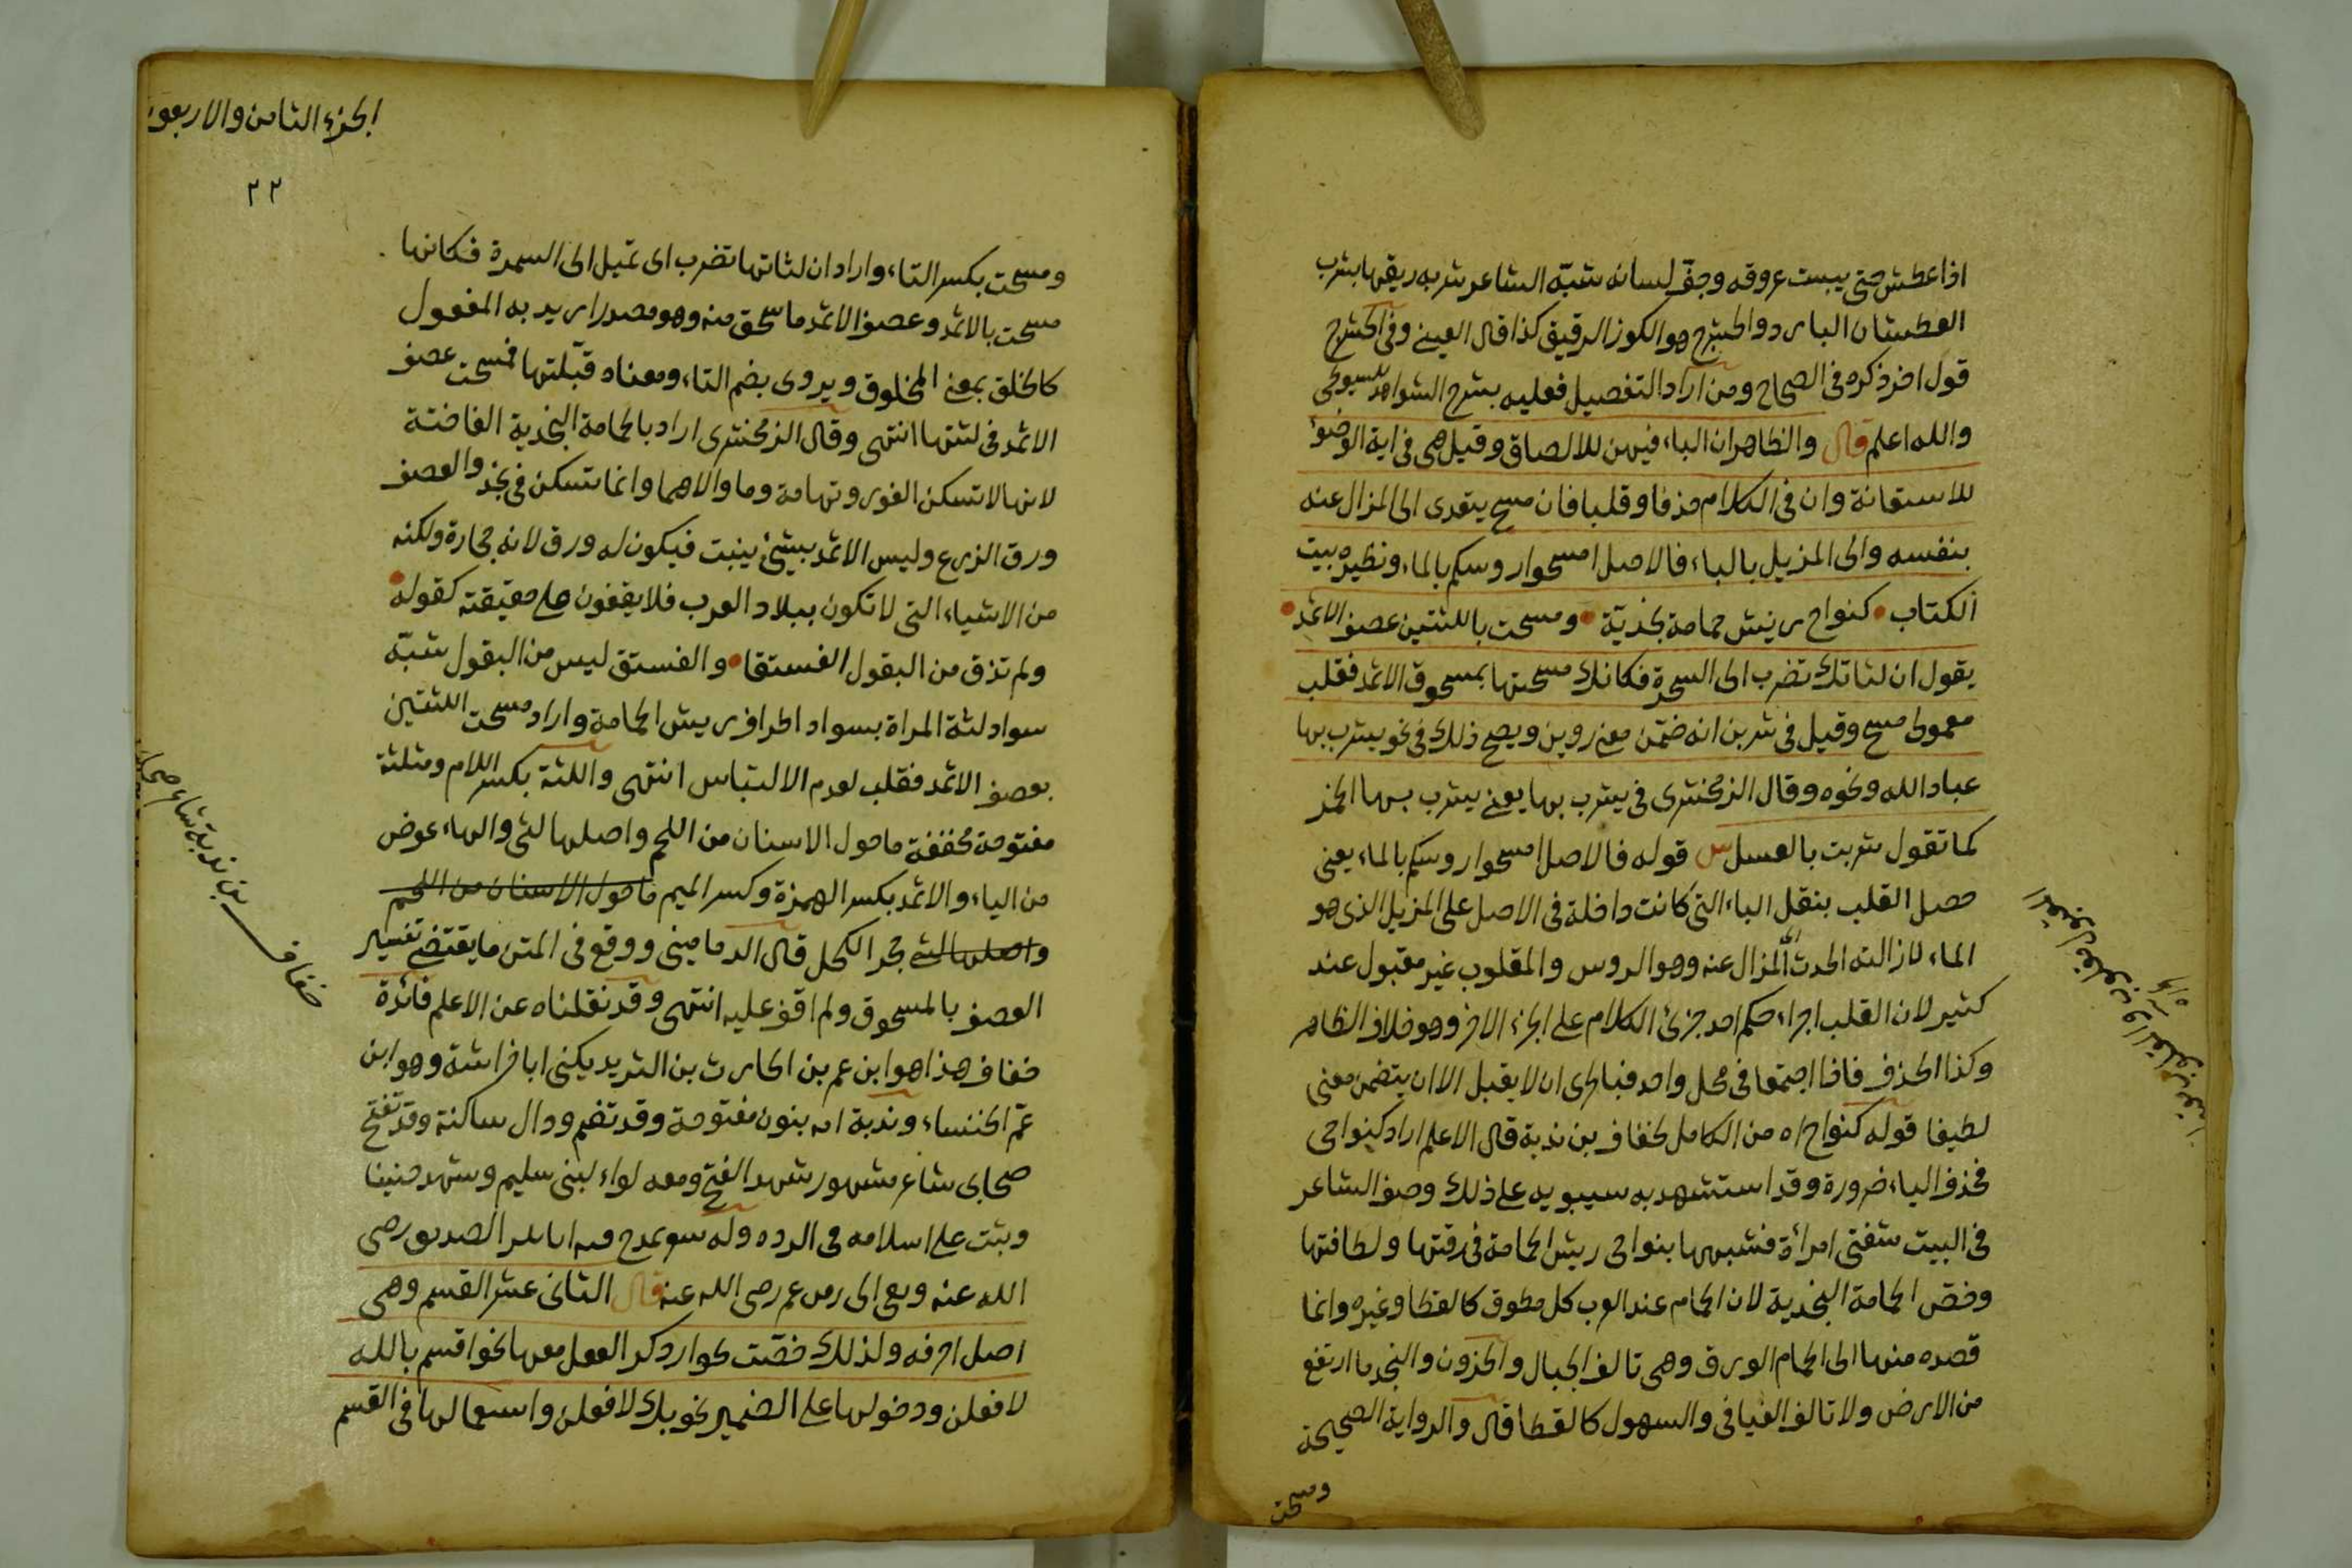 اذا عطش حتى يبست عروقه وجفّ لسانه شبّه الشاعر شربه ريقها بشرب
العطشان البارد والحشرج هو الكوز الرقيق كذا قال العيني وفى الحشرج
قول اخر ذكره فى الصحاح ومن اراد التفصيل فعليه بشرح الشواهد للسيوطى
والله اعلم قال والظاهر ان الباء فيهن للالصاق وقيل هى فى اية الوضوء
للاستعانة وان فى الكلام حذفا وقلبا فان مسح يتعدى الى المزال عنه
بنفسه والى المزيل بالباء فالاصل امسحوا روسكم بالماء ونظيره بيت
الكتاب • كنواح ريش حمامة نجدية • ومسحت باللثتين عصف الاثمد •
يقول ان لثاتك تضرب الى السمرة فكانك مسحتها بمسحوق الاثمد فقلب
معمولى مسح وقيل فى شربن انه ضمّن معنى روين ويصح ذلك فى نحو يشرب بها
عباد الله ونحوه وقال الزمخشرى فى يشرب بها يعنى يشرب بها الخمر
كما تقول شربت بالعسل س قوله فالاصل امسحوا روسكم بالماء يعنى
حصل القلب بنقل الباء التى كانت داخلة فى الاصل على المزيل الذى هو
الماء لازالته الحدث المزال عنه وهو الروس والمقلوب غير مقبول عند
كثير لان القلب اجراء حكم احد جزئ الكلام على الجزء الاخر وهو خلاف الظاهر
وكذا الحذف فاذا اجتمعا فى محل واحد فبالحرى ان لا يقبل الا ان يتضمن معنى
لطيفا قوله كنواح اه من الكامل لخفاف بن ندبة قال الاعلم اراد كنواحى
فحذف الياء ضرورة وقد استشهد به سيبويه على ذلك وصف الشاعر
فى البيت شفتى امرأة فشبهها بنواحى ريش الحمامة فى رقتها ولطافتها
وخصّ الحمامة النجدية لان الحمام عند العرب كل مطوق كالقطا وغيره وانما
قصده منها الى الحمام الورق وهى تالف الجبال والحزون والنجد ما ارتفع
من الارض ولا تالف الفيافى والسهول كالقطا قال والرواية الصحيحة
ومسحت
الجزء الثامن والاربعون
٢٢
ومسحت بكسر التاء واراد ان لثاتها تضرب اى تميل الى السمرة فكانها
مسحت بالاثمد وعصف الاثمد ما سحق منه وهو مصدر اريد به المفعول
كالخلق بمعنى المخلوق ويروى بضم التاء ومعناه قبّلتها فمسحت عصف
الاثمد فى لثتها انتهى وقال الزمخشرى اراد بالحمامة النجدية الفاختة
لانها لا تسكن الغور وتهامة وما والاهما وانما تسكن فى نجد والعصف
ورق الزرع وليس الاثمد بشئ ينبت فيكون له ورق لانه حجارة ولكنه
من الاشياء التى لا تكون ببلاد العرب فلا يقفون على حقيقته كقوله •
ولم تذق من البقول الفستقا • والفستق ليس من البقول شبّه
سواد لثة المراة بسواد اطراف ريش الحمامة واراد مسحت اللثتين
بعصف الاثمد فقلب لعدم الالتباس انتهى واللثة بكسر اللام ومثلثة
مفتوحة مخففة ما حول الاسنان من اللحم واصلها لثى والهاء عوض
من الياء والاثمد بكسر الهمزة وكسر الميم ما حول الاسنان من اللحم
واصلها لثى حجر الكحل قال الدمامينى ووقع فى المتن ما يقتضى تفسير
العصف بالمسحوق ولم اقف عليه انتهى وقد نقلناه عن الاعلم فائدة
خفاف هذا هو ابن عم بن الحارث بن الشريد يكنى ابا خراشة وهو ابن
عمّ الخنساء وندبة امه بنون مفتوحة وقد تضم ودال ساكنة وقد تفتح
صحابى شاعر مشهور شهد الفتح ومعه لواء لبنى سليم وشهد حنينا
وثبت على اسلامه فى الرده وله شعر يمدح فيه ابا بكر الصديق رضى
الله عنه وبقى الى زمن عمر رضى الله عنه قال الثانى عشر القسم وهى
اصل احرفه ولذلك خصّت بجواز ذكر الفعل معها نحو اقسم بالله
لافعلن ودخولها على الضمير نحو بك لافعلن واستعمالها فى القسم
خفاف بن ندبة شاعر صحابى